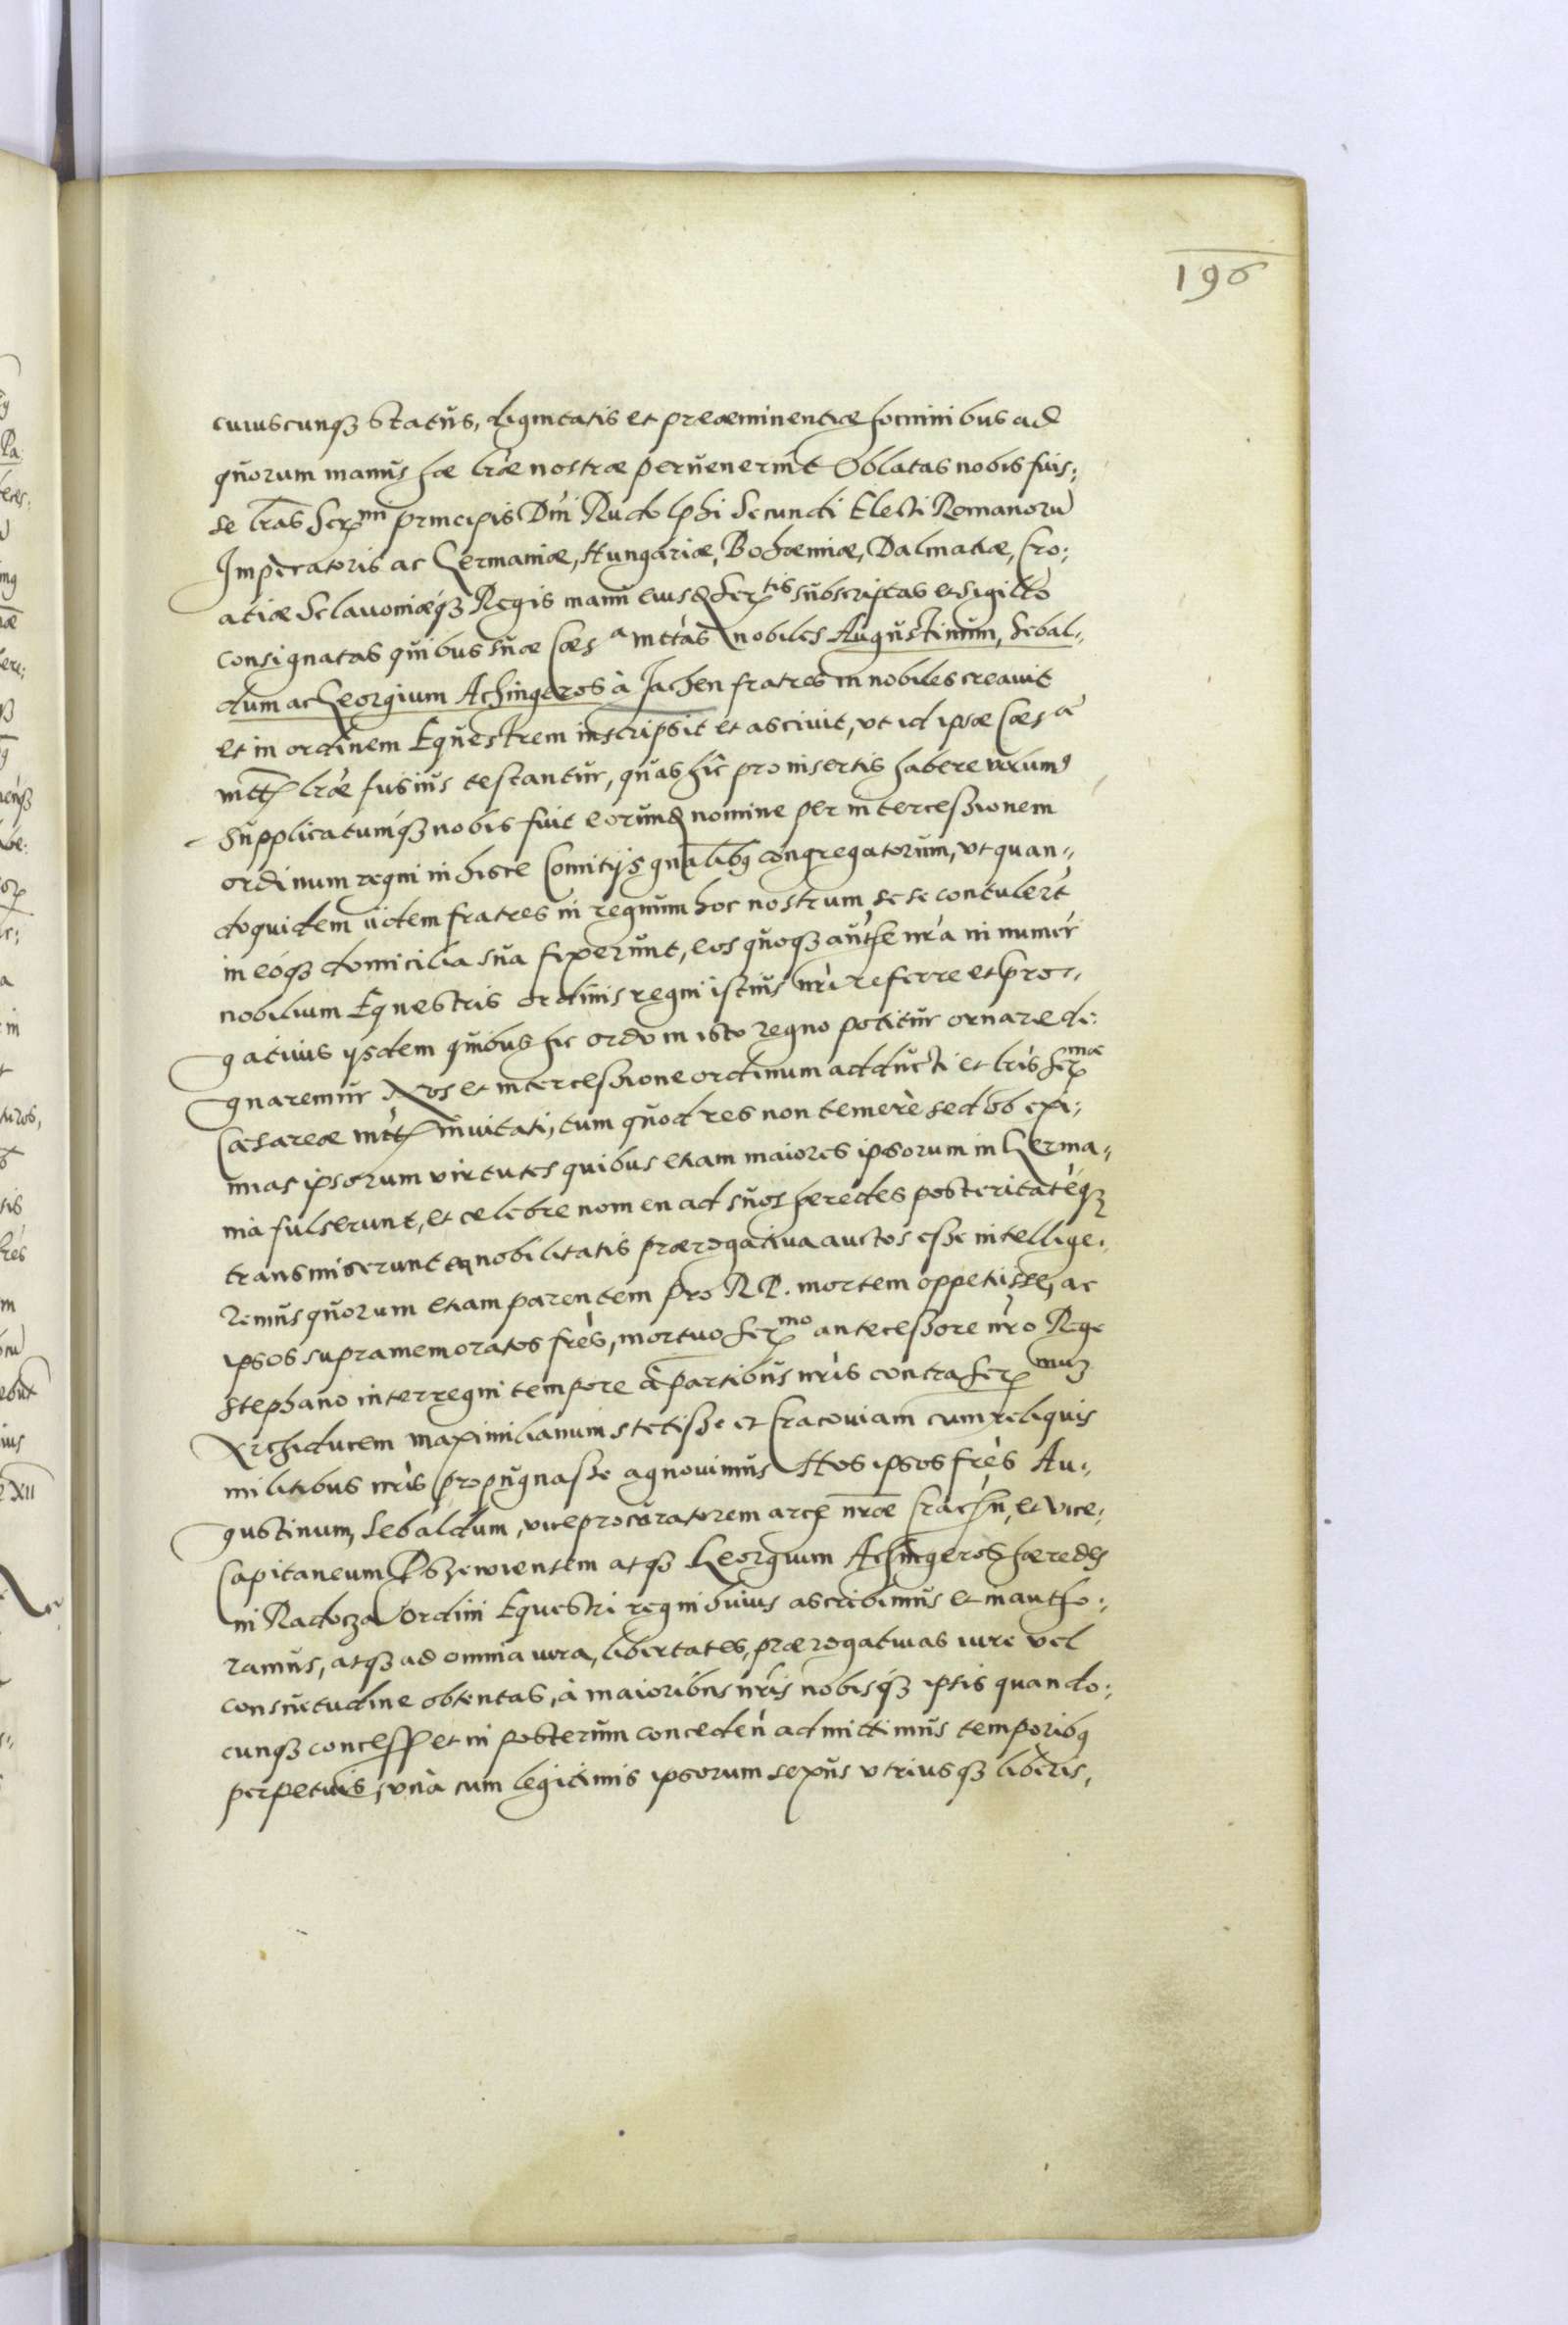 196
cuiuscunqz status, dignitatis et praeeminentiae hominibus ad
quorum manus hae lrae nostrae peruenerint Oblatas nobis fuis:
se lras Sermi principis Dni Rudolphi Secundi Electi Romanorū
Imperatoris ac Germaniae, Hungariae, Bohaemiae, Dalmatiae, Cro:
atiae Sclauoniaeqz Regis manu eiusd Sertis subscriptas et Sigillo
consignatas quibus suae Caesa mttas nobiles Augustinum, Sebal„
dum ac Georgium Achingeros à Jachen fratres in nobiles creauit
et in ordinem Equestrem inscripsit et asciuit, vt id ipsae Caesa
mttis lrae fusius testantur, quas hic pro insertis habere
Supplicatumqz nobis fuit eorund nomine per intercessionem
ordinum regni in hisce Comitijs gnalibus congregatorum, vt quan„
doquidem iidem fratres in regnum hoc nostrum sese contulert
in eoqz domicilia sua fixerunt, eos quoqz authe nra in numer
nobilium Equestris ordinis regni istius nri referre et prero„
gatiuis ysdem quibus hic ordo in isto regno potitur ornare di:
gnaremur Nos et intercessione ordinum adducti et lris Sermae
Caesareae mttis inuitati, tum quod res non temere sed ob exi:
mias ipsorum virtutes quibus etiam maiores ipsorum in Germa„
nia fulserunt, et celebre nomen ad suos haeredes posteritateqz
transmiserunt ea nobilitatis praerogatiua auctos esse intellige:
remus quorum etiam parentem pro RP. mortem oppetisse, ac
ipsos supramemoratos fres, mortuo Sermo antecessore nro Rege
Stephano interregni tempore à partibus nris contra Sermuz
Archiducem Maximilianum stetisse et Cracouiam cum reliquis
militibus nris propugnasse agnouimus Hos ipsos fres Au„
gustinum, Sebaldum, viceprocuratorem arcis nrae Cracn, et vice:
Capitaneum atqz Georgium Achingeros haeredes
in Radocza Ordini Equestri regni huius ascribimus et inautho:
ramus, atqz ad omnia iura, libertates, praerogatiuas iure vel
consuetudine obtentas, à maioribus nris nobisqz ipsis quando:
cunqz concess et in posterum conceden admittimus temporibus
perpetuis, vna cum legitimis ipsorum sexus vtriusqz liberis,